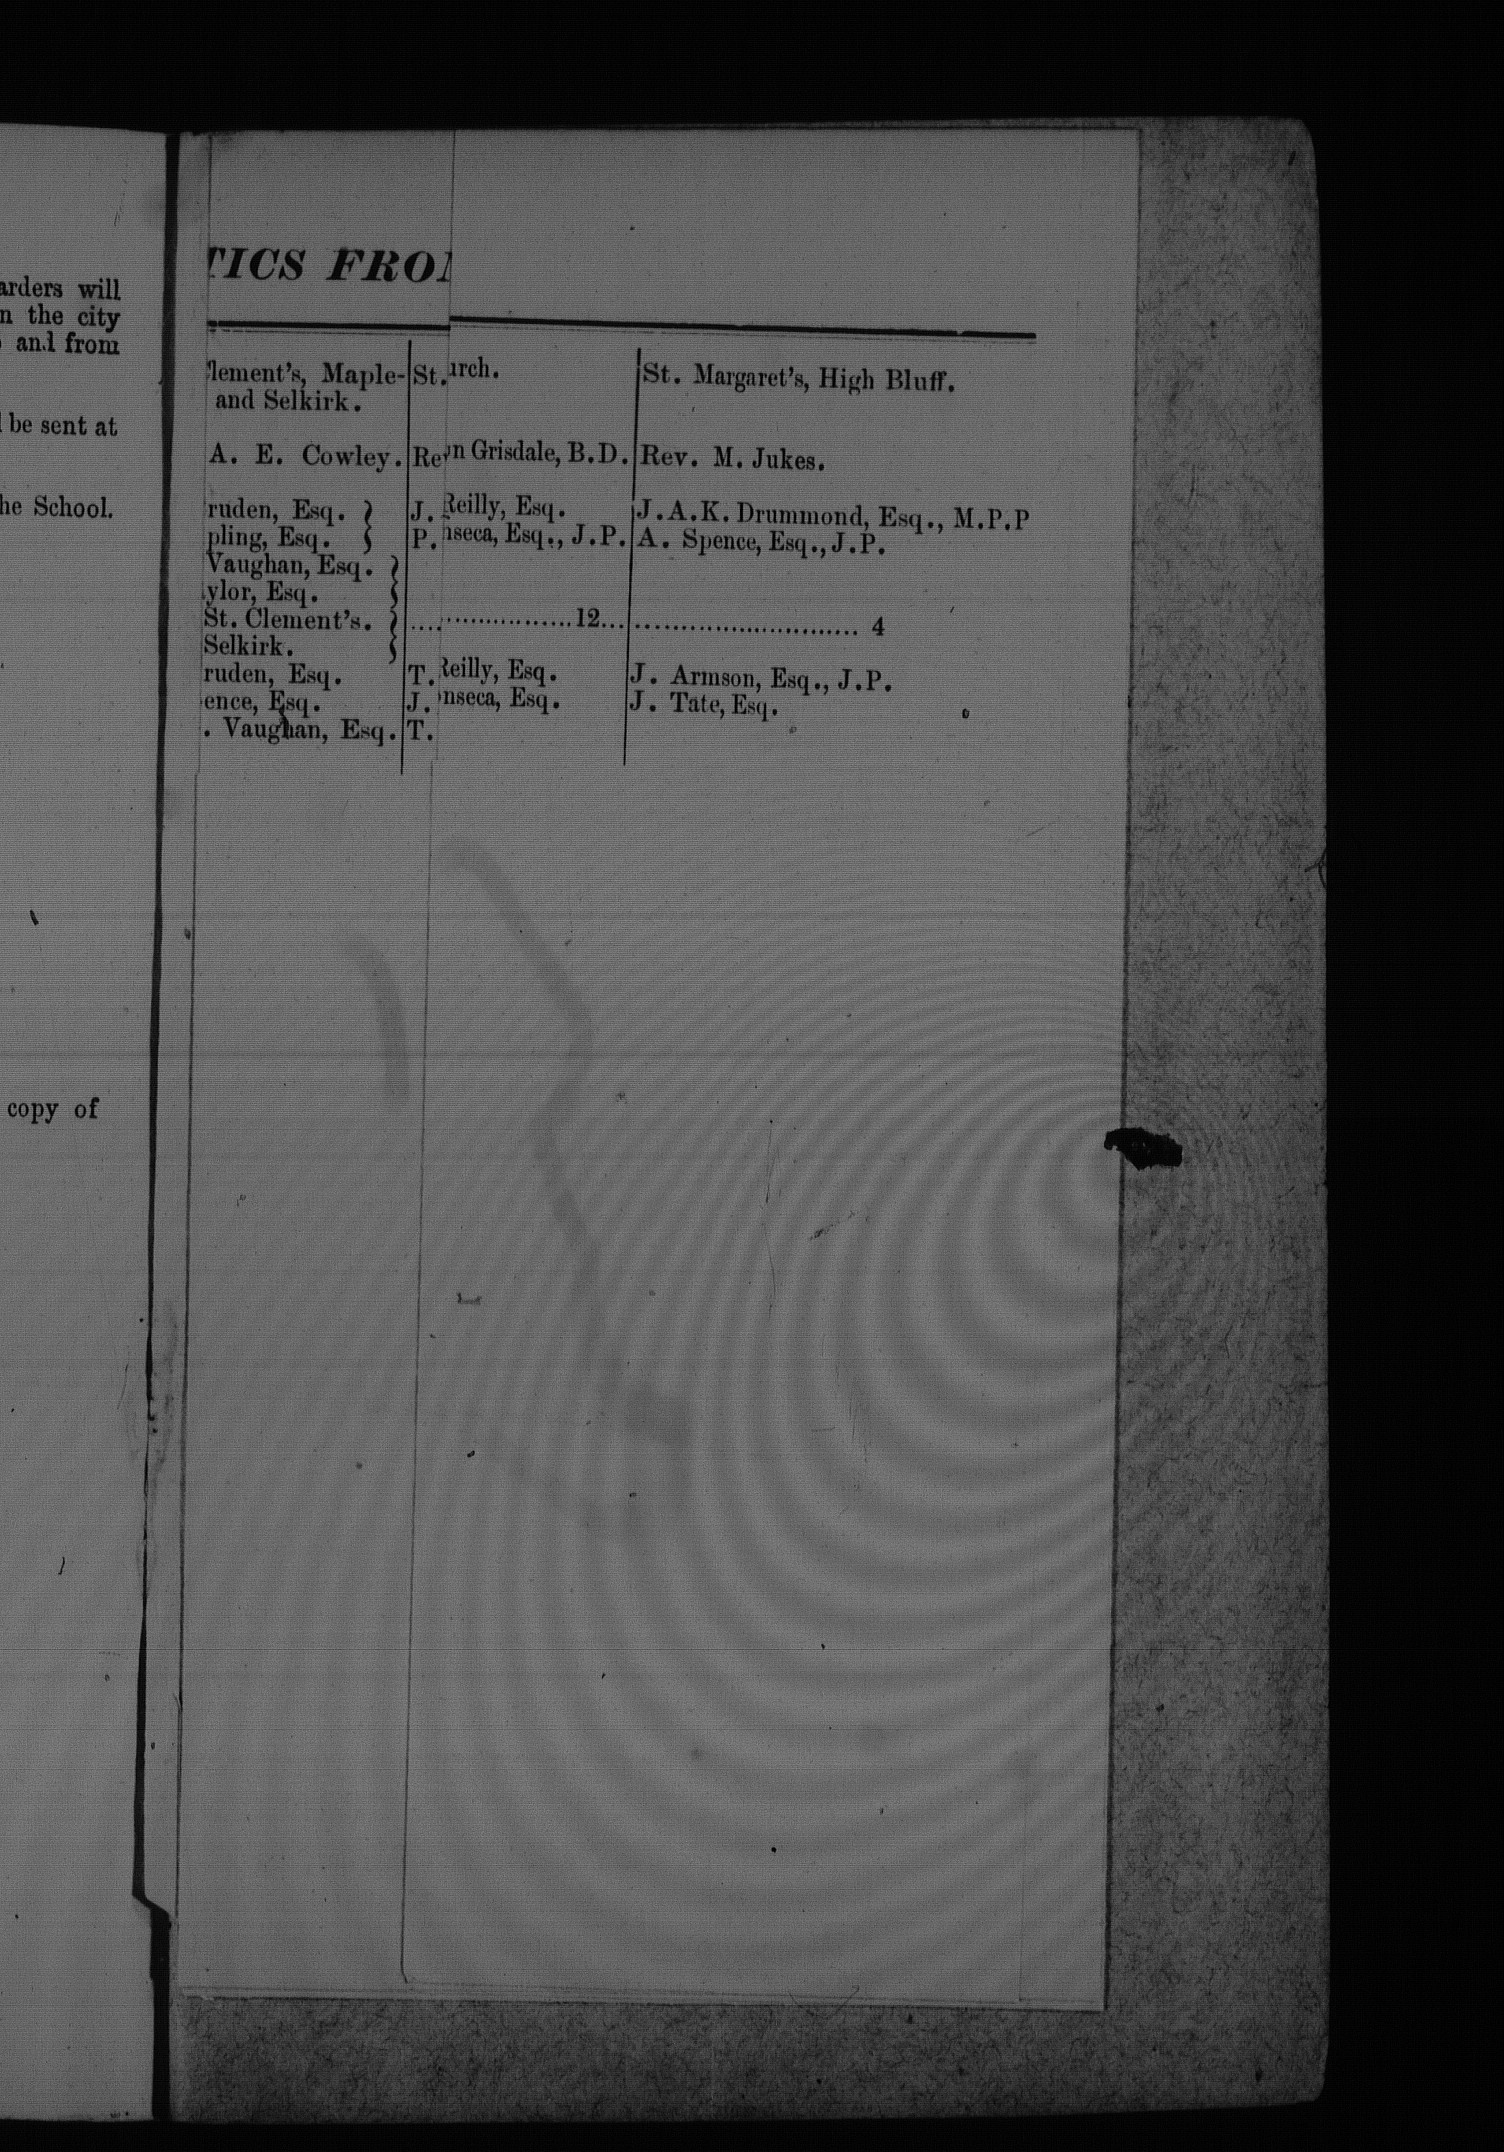 arders will
n the city
and from
be sent at
he School.
copy of
TICS FROM
lement's, Maple- St. urch. St. Margaret's, High Bluff.
and Selkirk.
A. E. Cowley. Re n Grisdale, B.D. Rev. M. Jukes.
ruden, Esq. } J. Reilly, Esq. J.A.K. Drummond, Esq., M.P.P
pling, Esq. } P. nseca, Esq., J.P. A. Spence, Esq., J.P.
Vaughan, Esq. }
ylor, Esq. }
St. Clement's. } .... ................12... ............................ 4
Selkirk. }
ruden, Esq. T. Reilly, Esq. J. Armson, Esq., J.P.
ence, Esq. J. onseca, Esq. J. Tate, Esq.
. Vaughan, Esq. T.